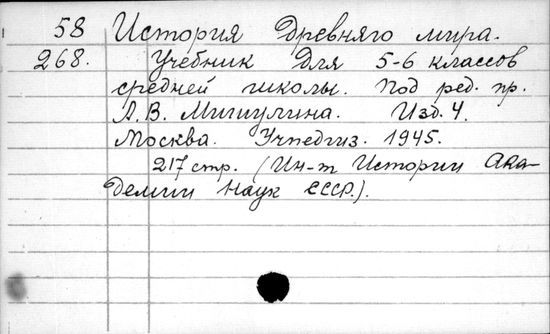 58 История Древняго мира.
268. Учебник для 5-6 классов
средней школы. Под ред. пр.
А.В. Мишулина. Изд. 4.
Москва. Учпедгиз. 1945.
217 стр. (Ин-т Истории Ака-
демии Наук СССР.).